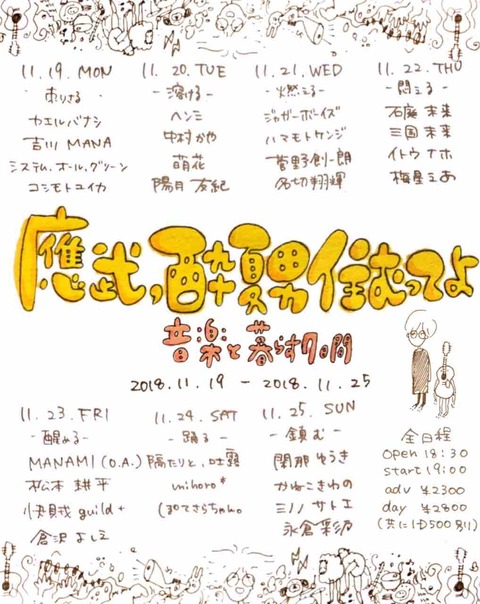 11.19. MON
カエルバナシ
吉川 MANA
システム.オール.グリーン
コシモトユイカ
11.20. TUE
- 溶ける -
ヘンミ
中村かや
萌花
陽月 友紀
11.21. WED
- 燃える -
ジャガーボーイズ
ハマモトケンジ
菅野創一朗
名切翔輝
11.22. THU
- 悶える -
石庭 未来
三国 未来
イトウ ナホ
梅星えあ
音楽と暮らす7日間
2018.11.19 - 2018.11.25
11.23. FRI
- 醒める -
MANAMI (O.A.)
松本 耕平
guild
倉沢 よしえ
11.24. SAT
- 踊る -
隔たりと、吐露
mihoro*
11.25. SUN
- 鎮む -
関那 ゆうき
かねこきわの
ミノノ サトエ
永倉彩乃
全日程
open 18:30
start 19:00
adv ¥2300
day ¥2800
(共に1D500別)